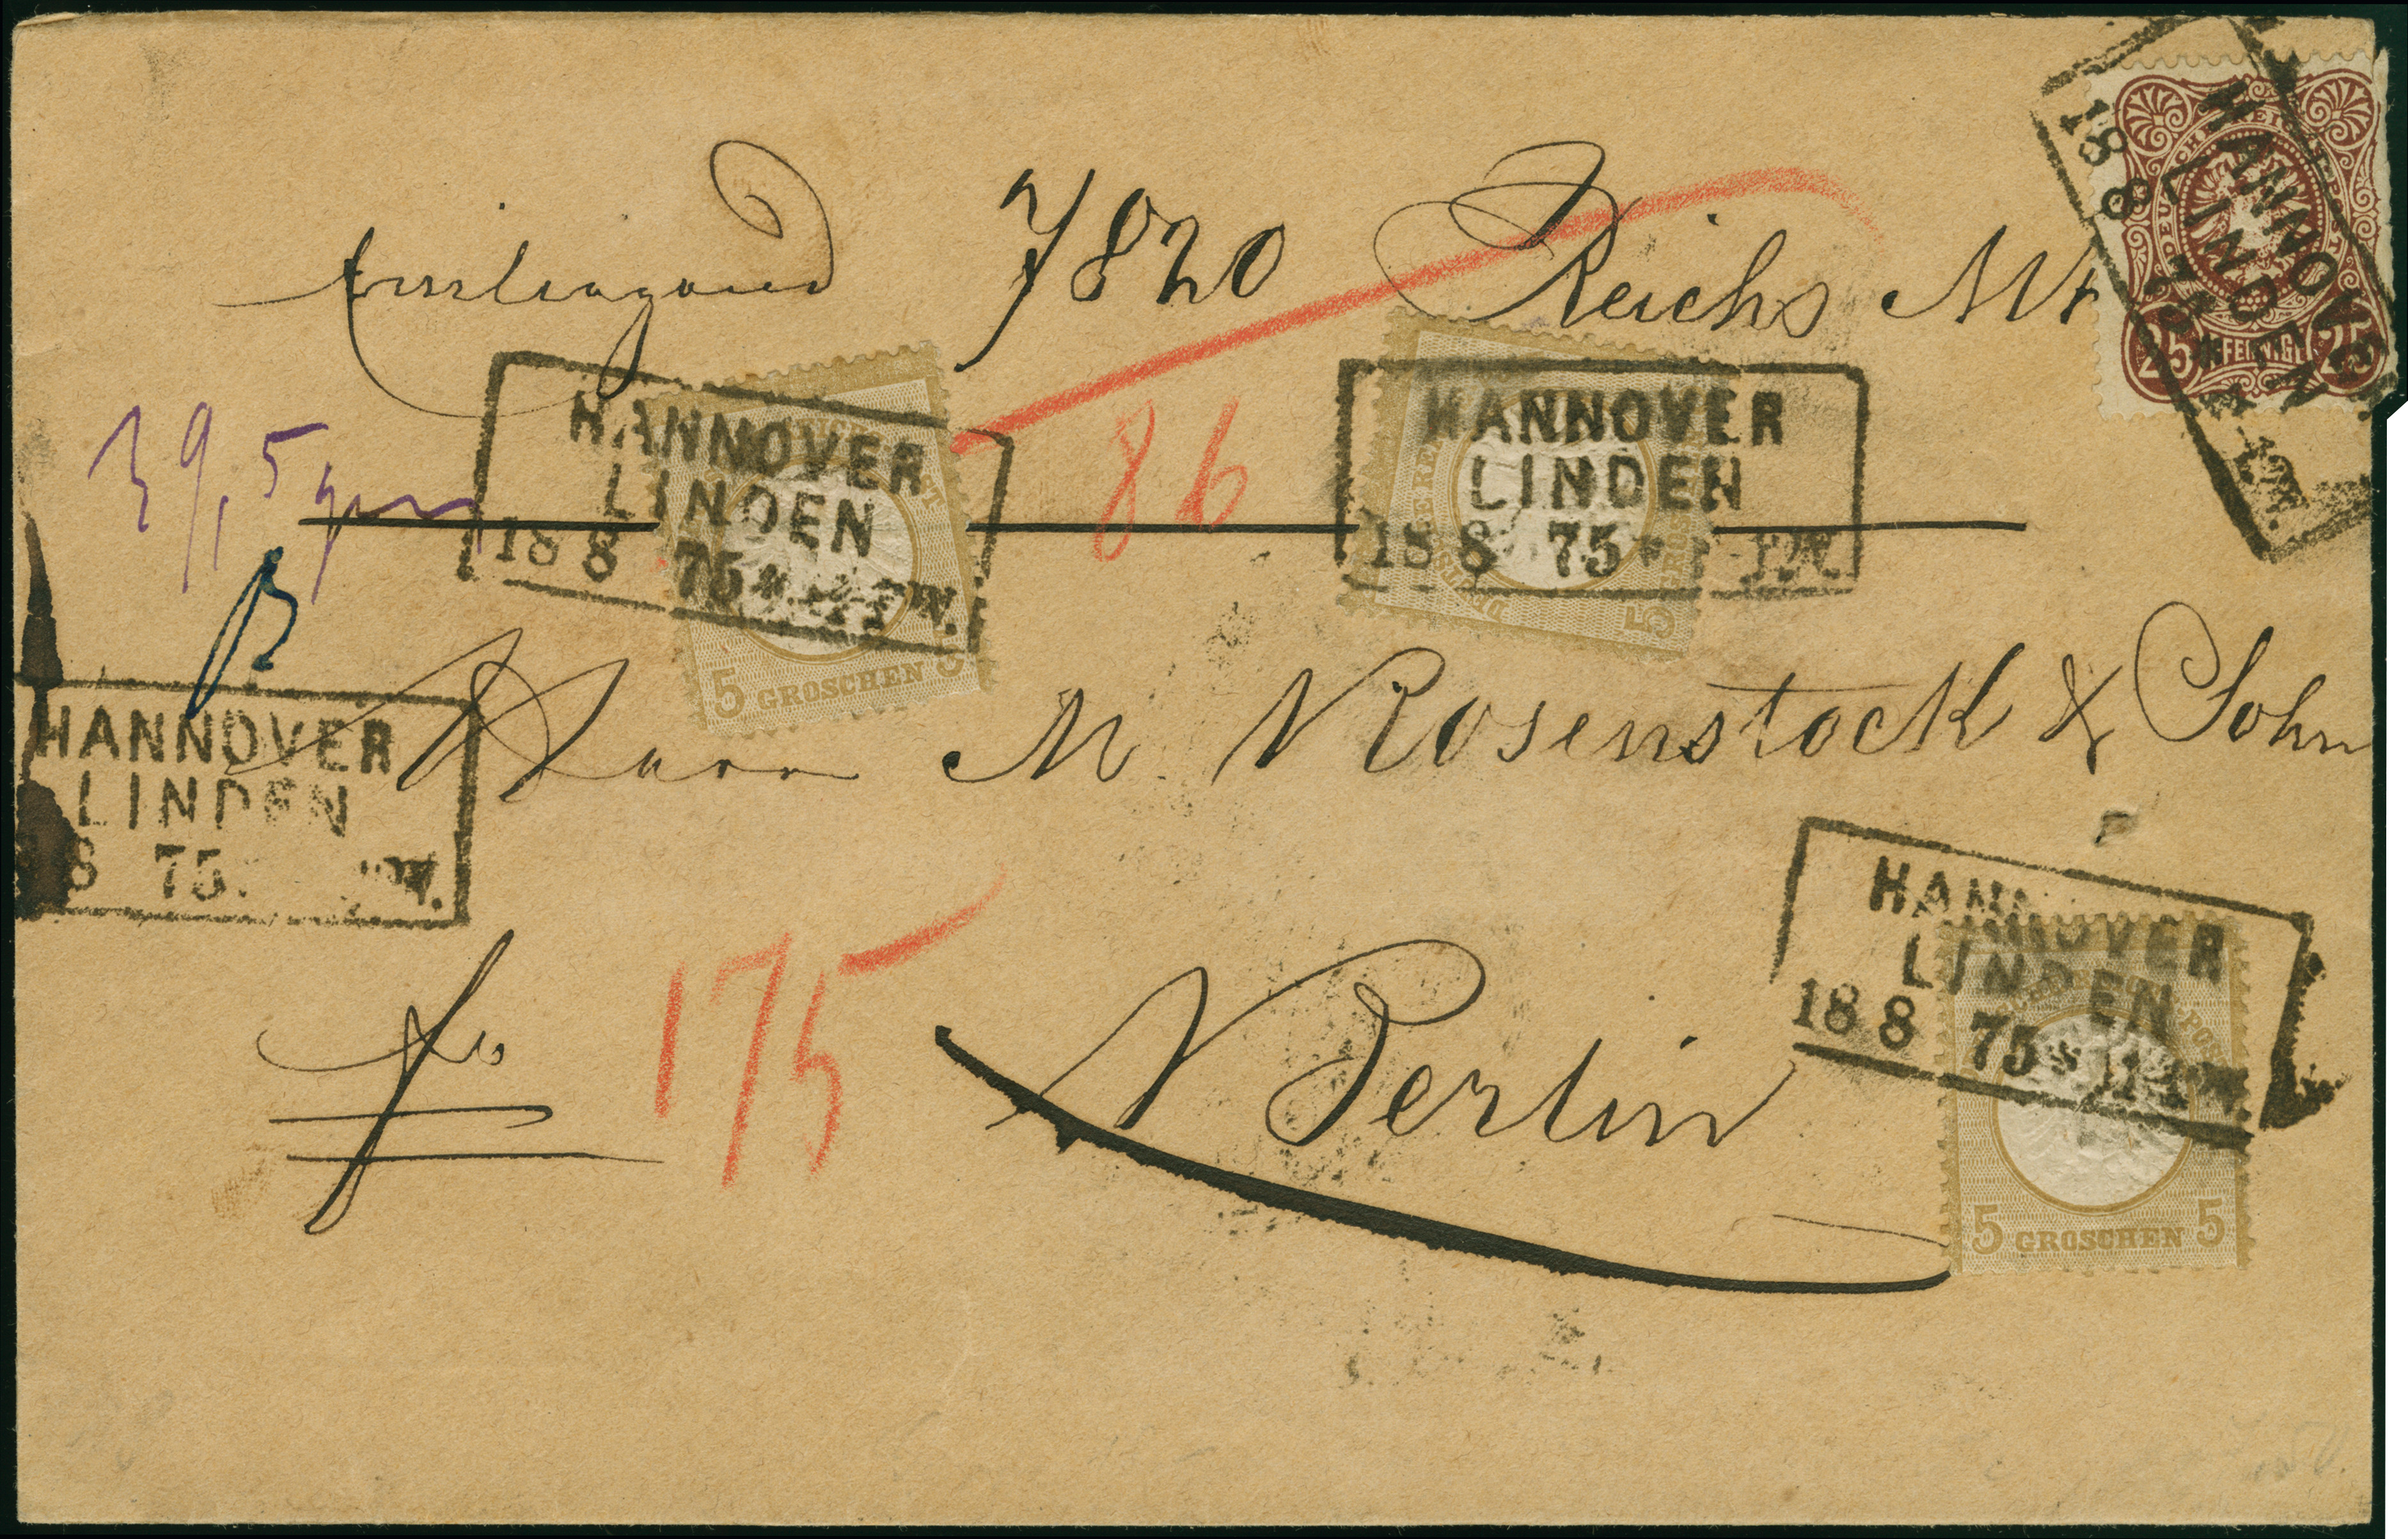 einliegend 7820 Reichs Mk
HANNOVER
LINDEN
18 8 75
DEUTSCHE REICHS-POST
25 PFENNIGE 25
39,5 gr
HANNOVER
LINDEN
18 8 75
5 GROSCHEN 5
86
HANNOVER
LINDEN
18 8 75
5 GROS
Herrn M. Rosenstock & Sohn
HANNOVER
LINDEN
8 75
fco
175
Berlin
HANNOVER
LINDEN
18 8 75
5 GROSCHEN 5